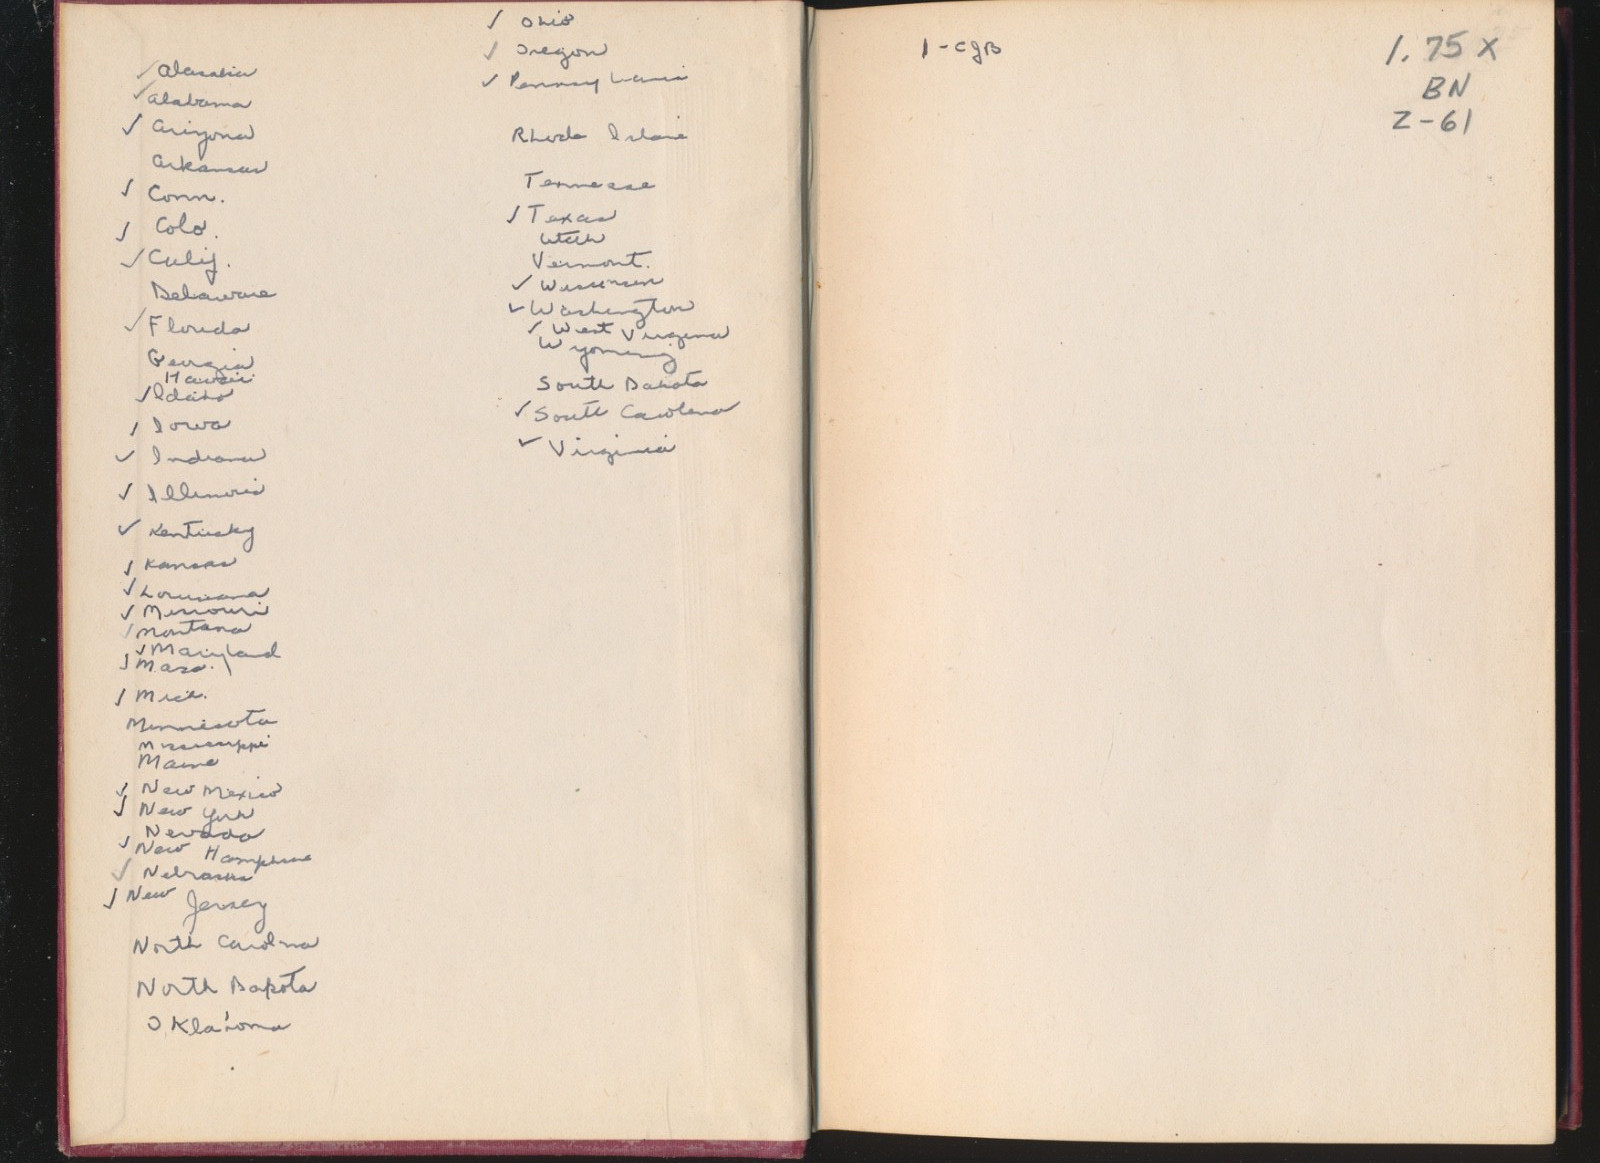 ✓ Alaska
✓ Alabama
✓ Arizona
Arkansas
✓ Conn.
✓ Colo.
✓ Calif.
Delaware
✓ Florida
Georgia
Hawaii
✓ Idaho
✓ Iowa
✓ Indiana
✓ Illinois
✓ Kentucky
✓ Kansas
✓ Louisiana
✓ Missouri
✓ Montana
✓ Maryland
✓ Mass.
✓ Mich.
Minnesota
Mississippi
Maine
✓ New Mexico
✓ New York
Nevada
✓ New Hampshire
✓ Nebraska
✓ New Jersey
North Carolina
North Dakota
Oklahoma
✓ Ohio
✓ Oregon
✓ Pennsylvania
Rhode Island
Tennessee
✓ Texas
Utah
Vermont.
✓ Wisconsin
✓ Washington
✓ West Virginia
Wyoming
South Dakota
✓ South Carolina
✓ Virginia
1-CJB
1.75 X
BN
2-61